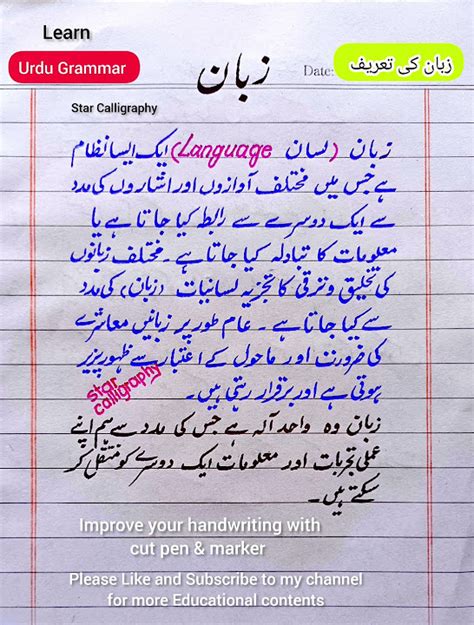 Learn
Urdu Grammar
زبان
Date:
زبان کی تعریف
Star Calligraphy
زبان (لسان Language) ایک ایسا نظام
ہے جس میں مختلف آوازوں اور اشاروں کی مدد
سے ایک دوسرے سے رابطہ کیا جاتا ہے یا
معلومات کا تبادلہ کیا جاتا ہے ۔ مختلف زبانوں
کی تخلیق و ترقی کا تجزیہ لسانیات (زبان) کی مدد
سے کیا جاتا ہے ۔ عام طور پر زبانیں معاشرے
کی ضرورت اور ماحول کے اعتبار سے ظہور پزیر
ہوتی ہے اور برقرار رہتی ہیں۔
star
calligraphy
زبان وہ واحد آلہ ہے جس کی مدد سے ہم اپنے
عملی تجربات اور معلومات ایک دوسرے کو منتقل کر
سکتے ہیں۔
Improve your handwriting with
cut pen & marker
Please Like and Subscribe to my channel
for more Educational contents